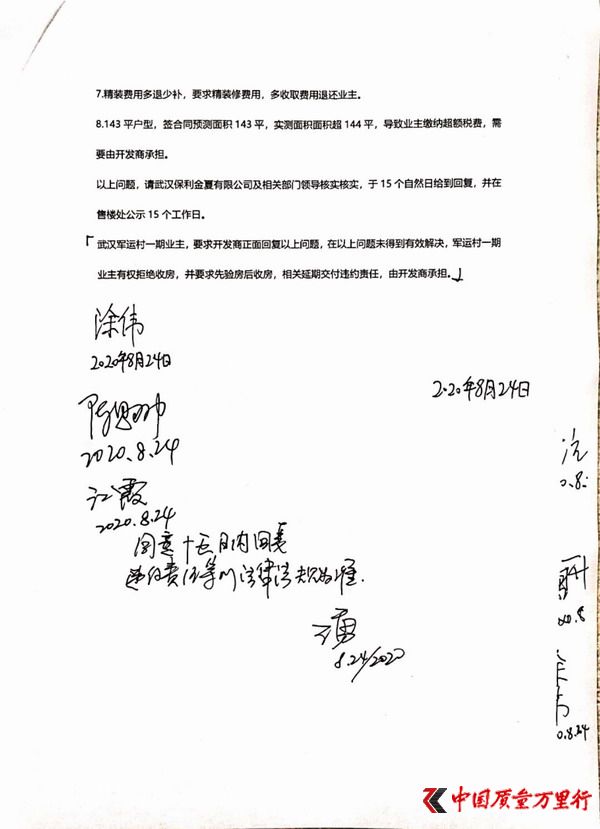 7.精装费用多退少补，要求精装修费用，多收取费用退还业主。
8.143 平户型，签合同预测面积 143 平，实测面积面积超 144 平，导致业主缴纳超额税费，需
要由开发商承担。
以上问题，请武汉保利金夏有限公司及相关部门领导核实核实，于 15 个自然日给到回复，并在
售楼处公示 15 个工作日。
「武汉军运村一期业主，要求开发商正面回复以上问题，在以上问题未得到有效解决，军运村一期
业主有权拒绝收房，并要求先验房后收房，相关延期交付违约责任，由开发商承担。」
涂伟
2020年8月24日
2020年8月24日
2020.8.24
江霞
2020.8.24
同意十五日内回复
违约责任等以法律法规为准.
8.24/2020
0.8.24
中国质量万里行